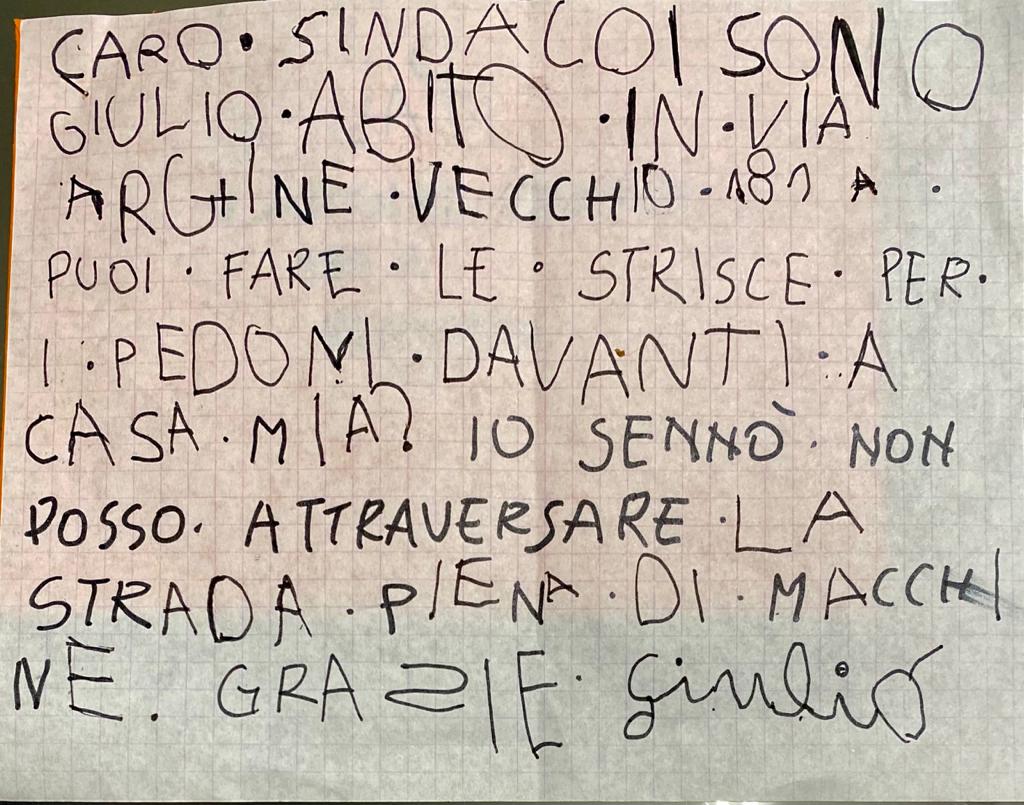 CARO · SINDACOI SONO
GIULIO · ABITO · IN · VIA
ARGINE · VECCHIO · 181 A ·
PUOI · FARE · LE · STRISCE · PER ·
I · PEDONI · DAVANTI · A
CASA · MIA? IO SENNÒ · NON
POSSO · ATTRAVERSARE · LA
STRADA · PIENA · DI · MACCHI
NE. GRAZIE · Giulio